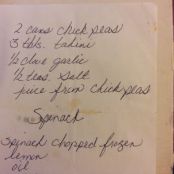 2 cans chick peas
3 tbls. tahini
½ clove garlic
½ teas. salt
juice from chick peas
Spinach
spinach chopped frozen
lemon
oil